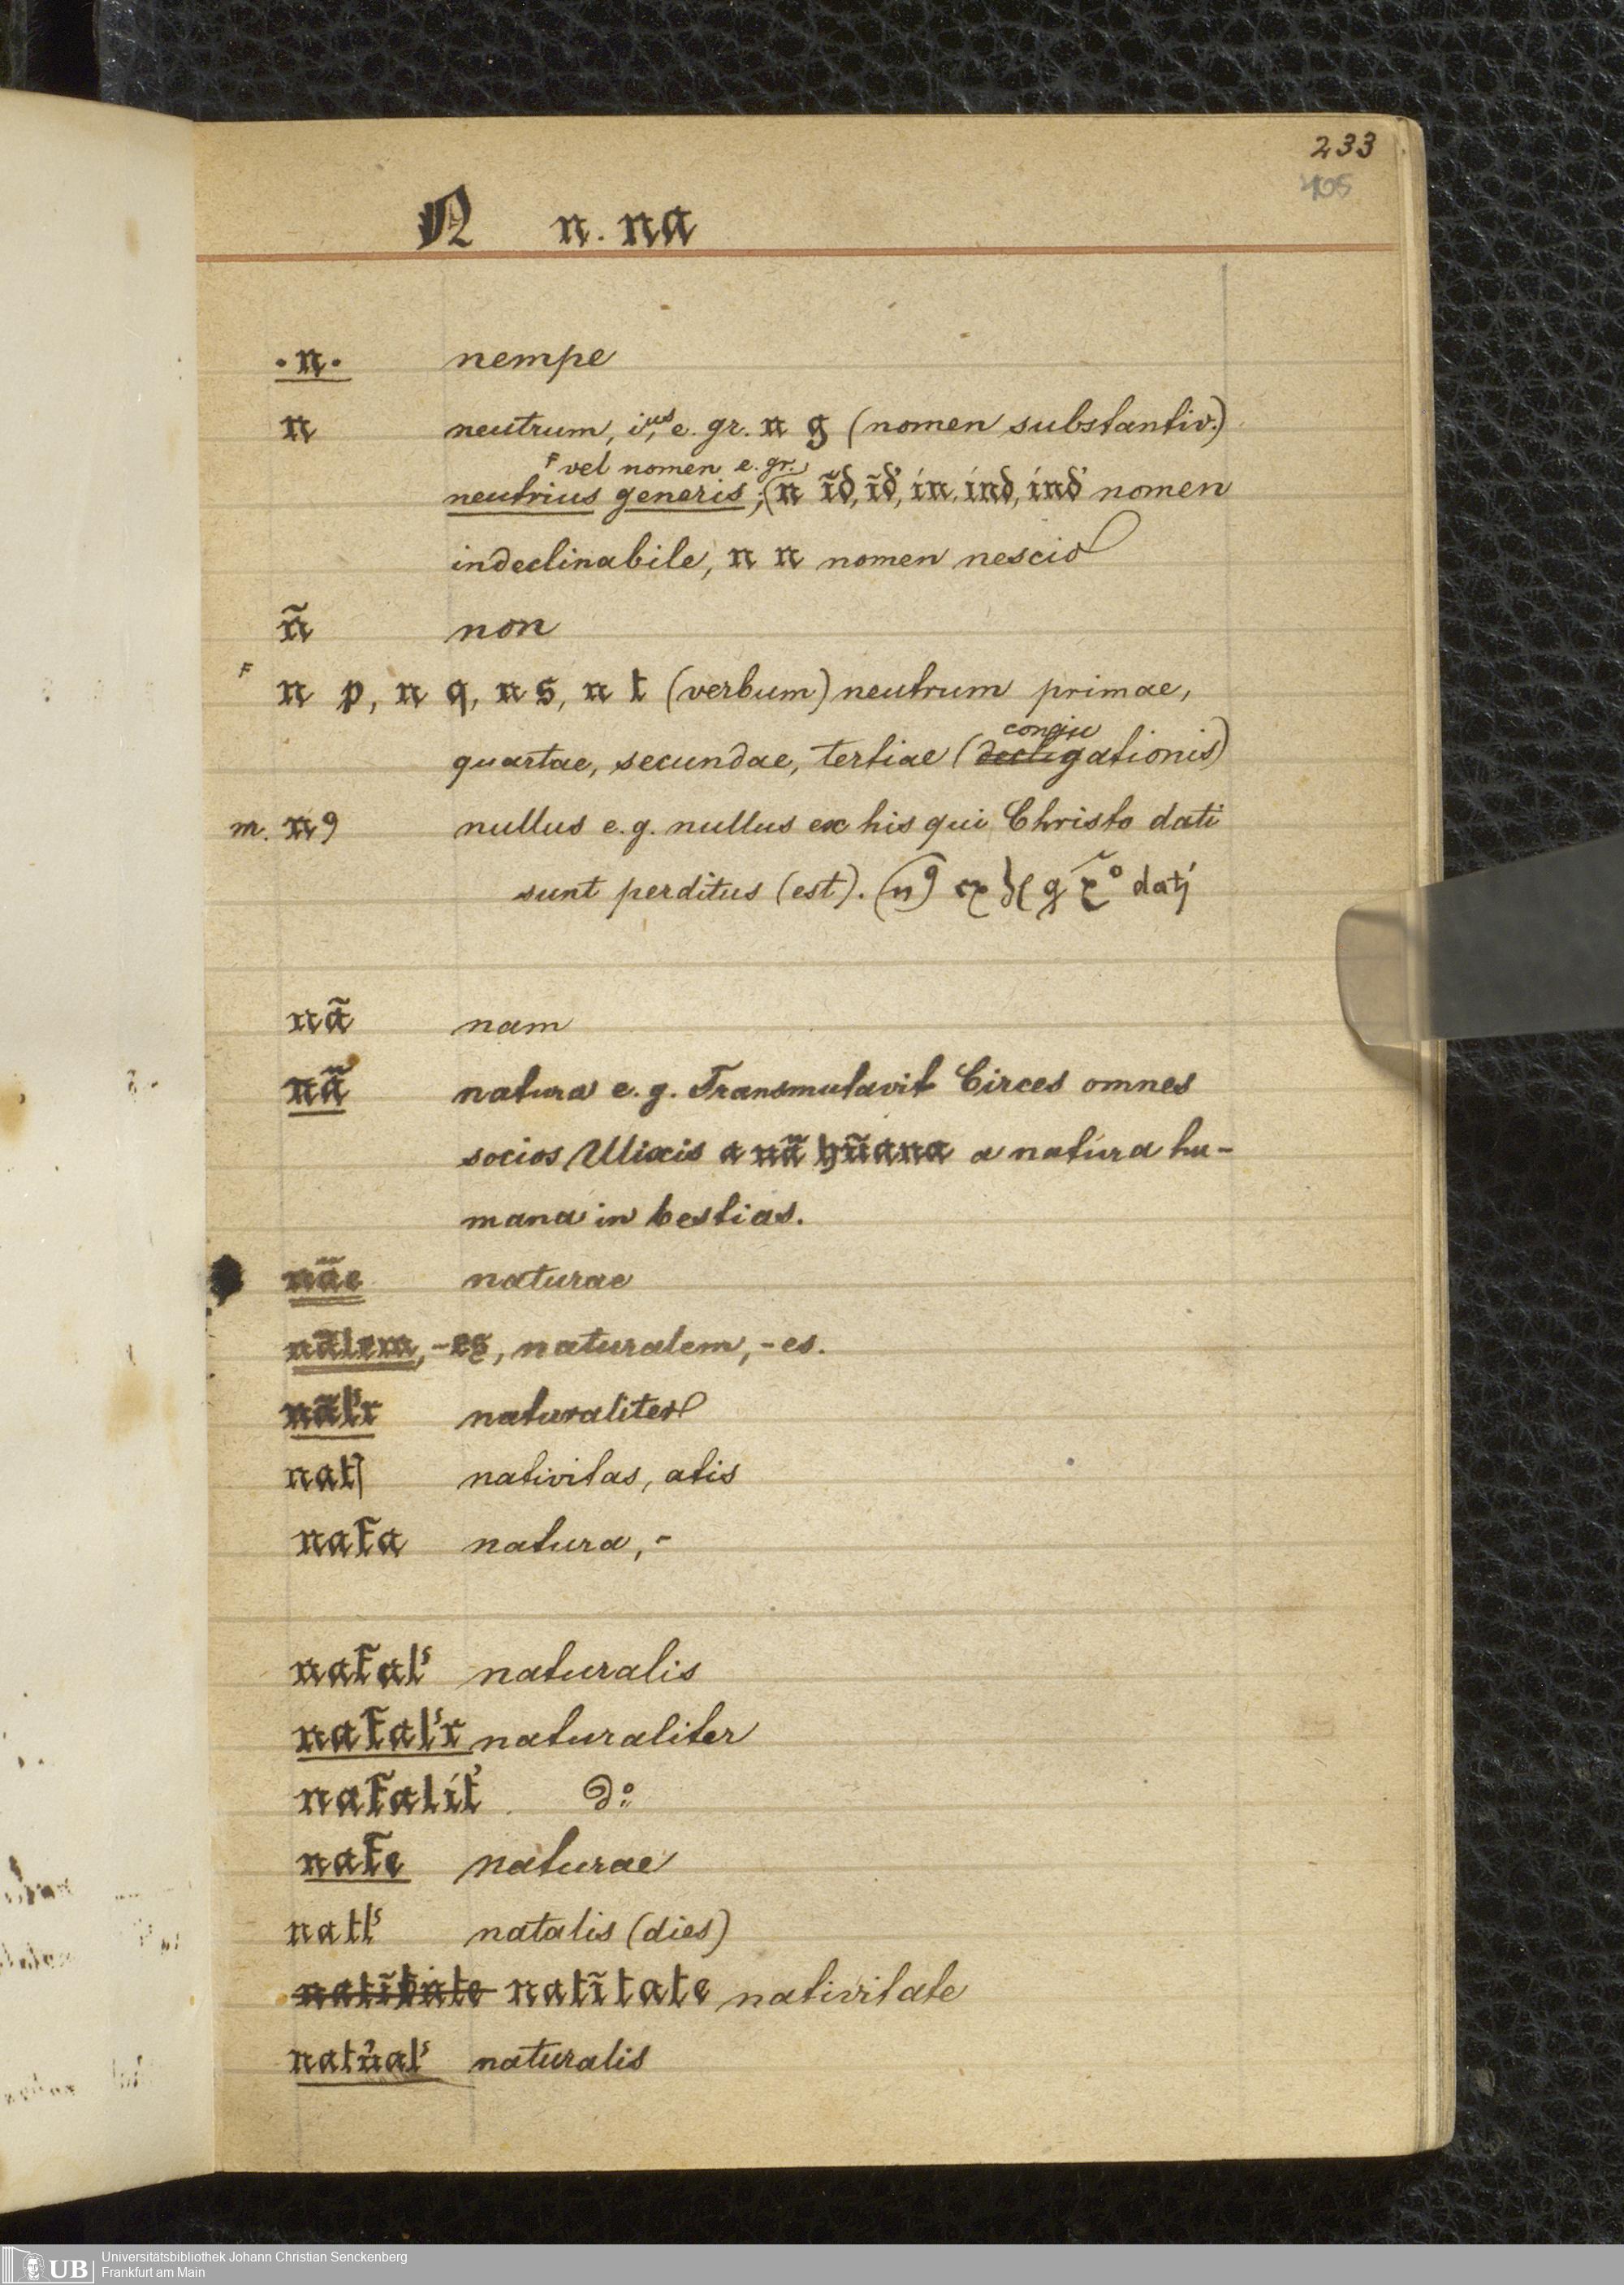 233
405
N n. na
·n· nempe
n neutrum, ius, e. gr. n g (nomen substantiv.)
vel nomen e. gr.
neutrius generis; n ĩd, ĩd', in, ind, ind' nomen
indeclinabile, n n nomen nescio
ñ non
n p, n q, n s, n t (verbum) neutrum primae,
conju
quartae, secundae, tertiae (gationis)
m. n9 nullus e. g. nullus ex his qui Christo dati
sunt perditus (est). (n9 ex
nã nam
nã natura e. g. Transmutavit Circes omnes
socios Ulixis a nã hũana a natura hu-
mana in bestias.
nãe naturae
nãlem, -es, naturalem, -es.
nãl'r naturaliter
natʃ nativitas, atis
nat̄a natura, -
nat̄alˢ naturalis
nat̄alˢr naturaliter
nat̄alit' do
nat̄e naturae
natlˢ natalis (dies)
natĩtate nativitate
natu᷑alˢ naturalis
UB Universitätsbibliothek Johann Christian Senckenberg
Frankfurt am Main